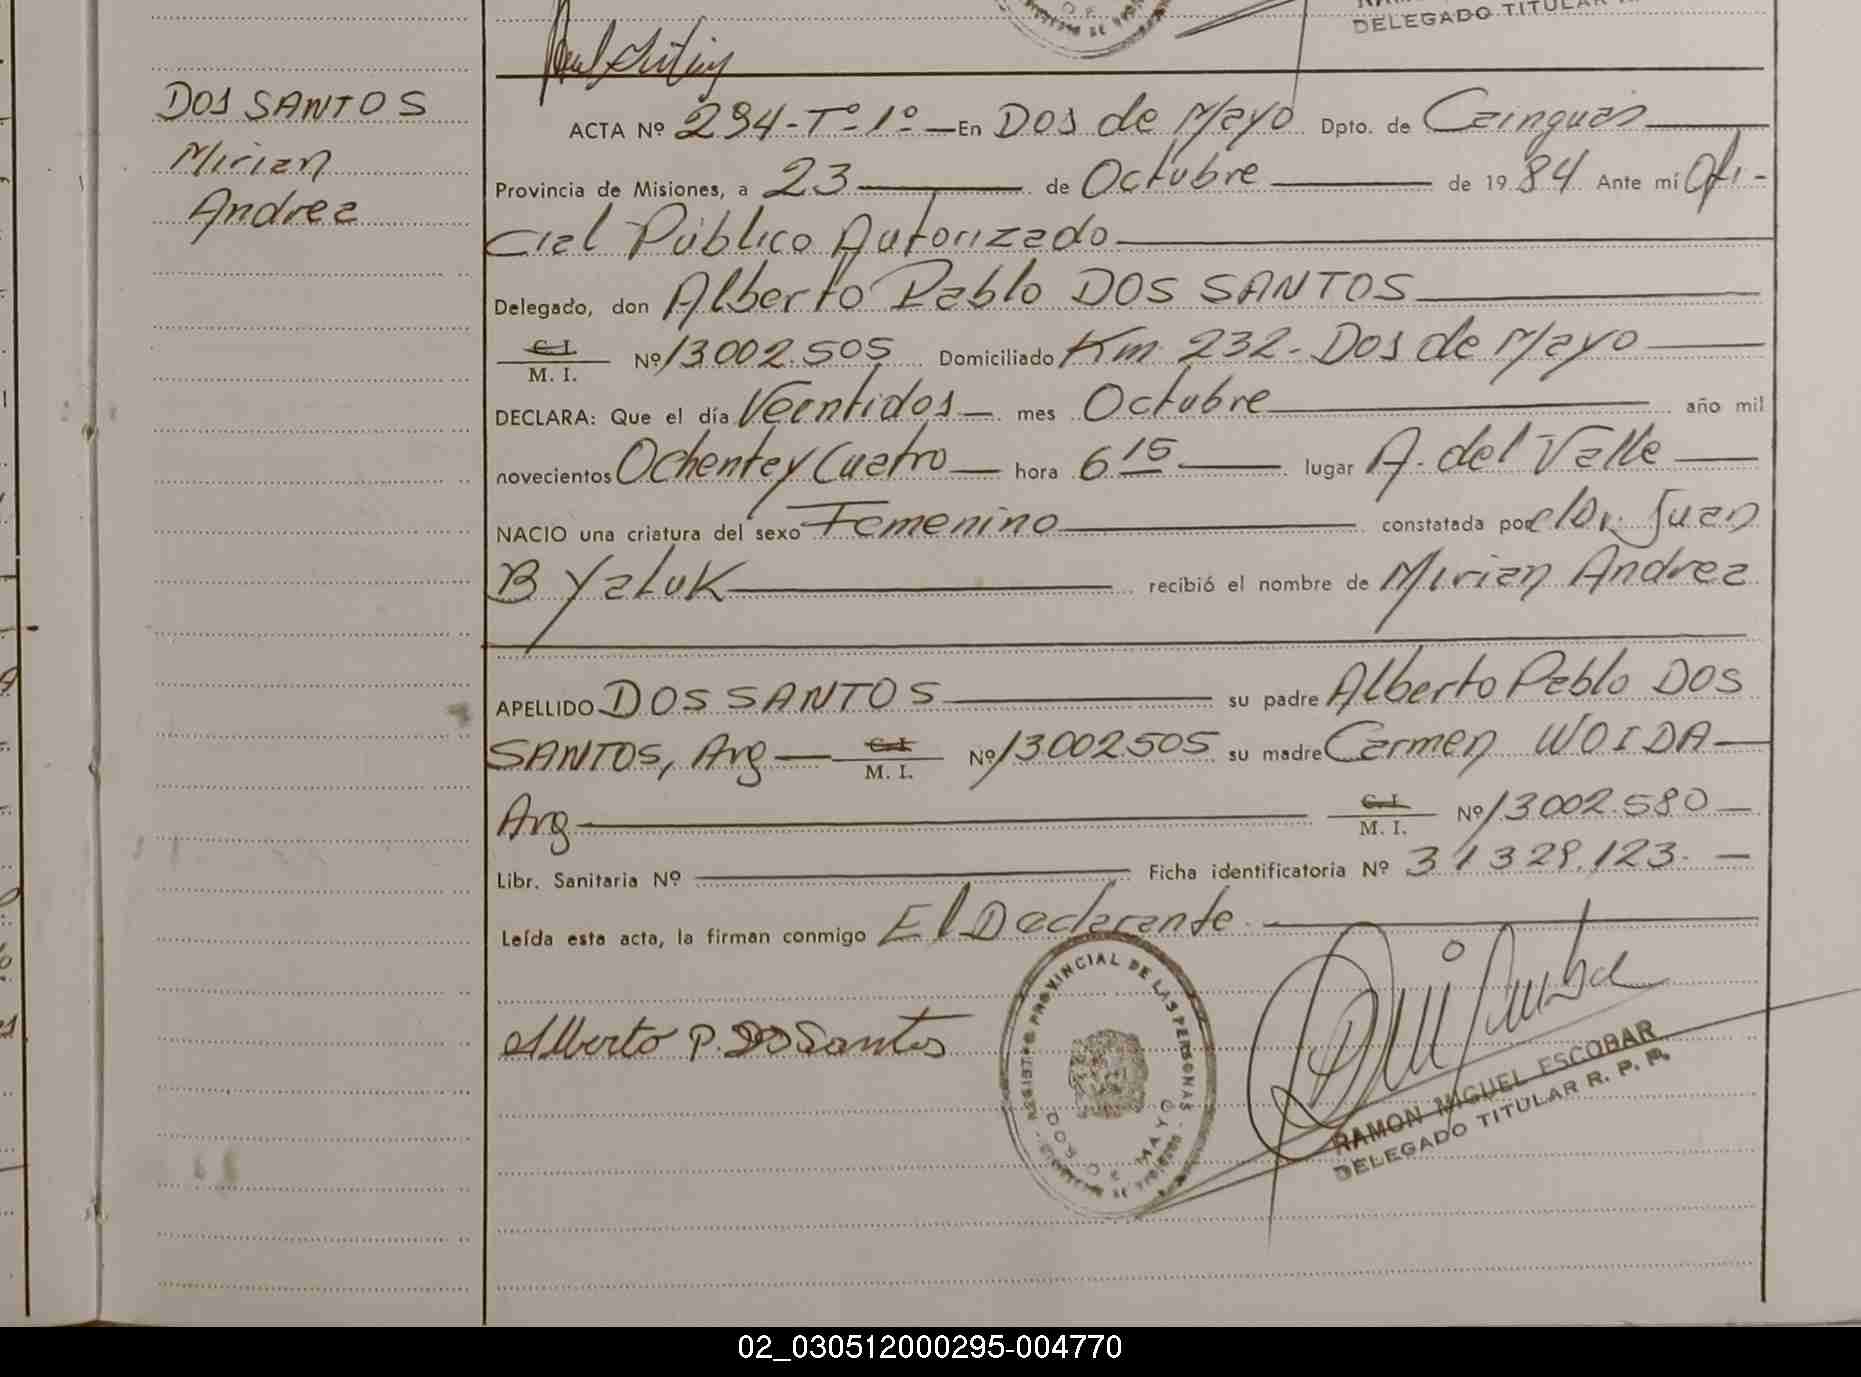 DELEGADO TITULAR
DOS SANTOS
Mirian
Andrea
ACTA Nº 294-Tº-1º - En Dos de Mayo Dpto. de Cainguás
Provincia de Misiones, a 23 de Octubre de 1984 Ante mí Ofi-
cial Público Autorizado
Delegado, don Alberto Pablo DOS SANTOS
C. I.
M. I. Nº 13.002.505 Domiciliado Km 232 - Dos de Mayo
DECLARA: Que el día Veintidos mes Octubre año mil
novecientos Ochenta y Cuatro hora 6 15 lugar A. del Valle
NACIO una criatura del sexo Femenino constatada por el Dr. Juan
B Yaluk recibió el nombre de Mirian Andrea
APELLIDO DOS SANTOS su padre Alberto Pablo DOS
SANTOS, Arg C. I. M. I. Nº 13.002.505 su madre Carmen WOIDA
Arg C. I. M. I. Nº 13.002.580
Libr. Sanitaria Nº Ficha identificatoria Nº 31.329.123.
Leída esta acta, la firman conmigo El Declarante
Alberto P. Dos Santos
REGISTRO PROVINCIAL DE LAS PERSONAS
DOS DE MAYO
RAMON MIGUEL ESCOBAR
DELEGADO TITULAR R. P. P.
02_030512000295-004770